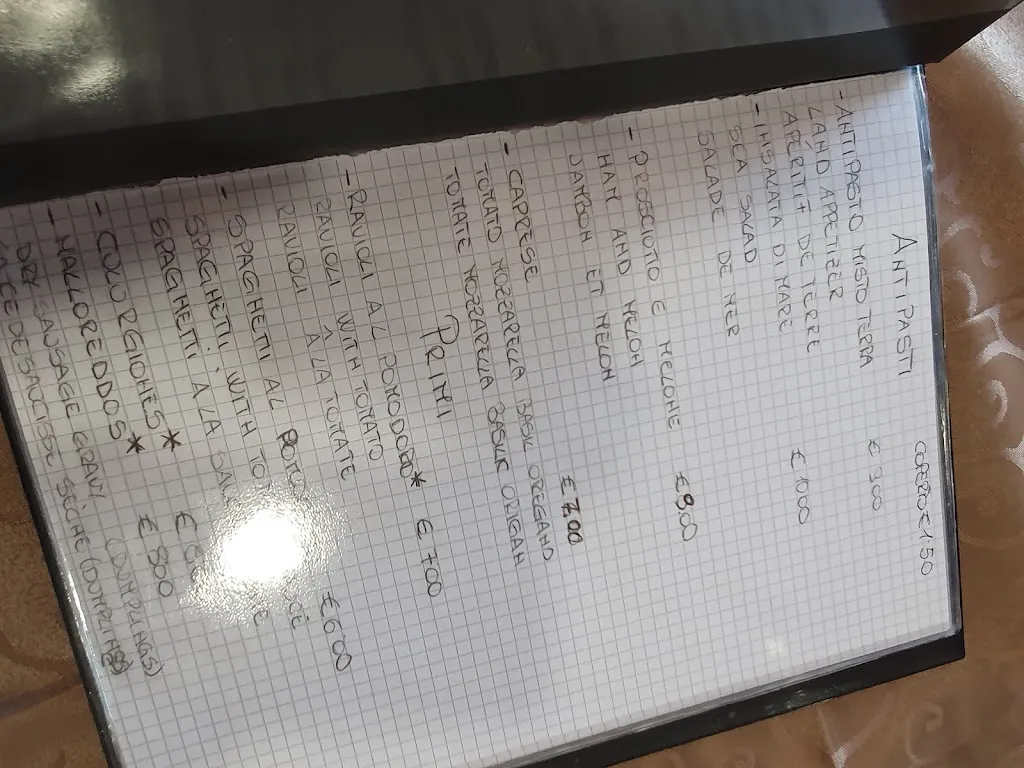 COPERTO € 1.50
ANTIPASTI
- ANTIPASTO MISTO TERRA € 9.00
LAND APPETIZER
APERITIF DE TERRE
- INSALATA DI MARE € 10.00
SEA SALAD
SALADE DE MER
- PROSCIUTTO E MELONE € 8.00
HAM AND MELON
JAMBON ET MELON
- CAPRESE € 7.00
TOMATO MOZZARELLA BASIL OREGANO
TOMATE MOZZARELLA BASILIC ORIGAN
PRIMI
- RAVIOLI AL POMODORO* € 7.00
RAVIOLI WITH TOMATO
RAVIOLI À LA TOMATE
- SPAGHETTI AL € 6.00
SPAGHETTI WITH
SPAGHETTI À LA
- CULURGIONES* €
- MALLOREDDOS* € 8.00
DRY SAUSAGE GRAVY (DUMPLINGS)
DE SAUCISSE SECHE